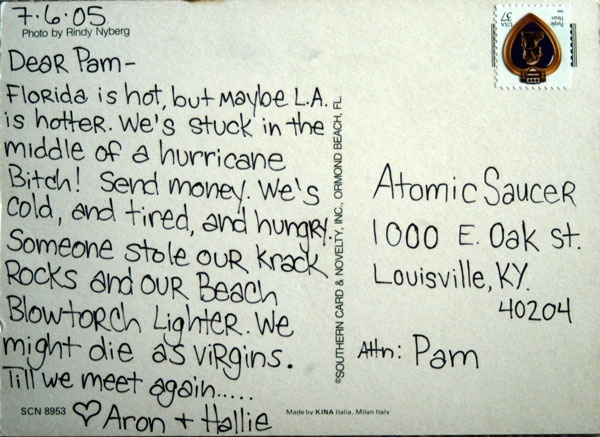 7.6.05
Photo by Rindy Nyberg
Dear Pam-
Florida is hot, but maybe L.A.
is hotter. We's stuck in the
middle of a hurricane
Bitch! Send money. We's
cold, and tired, and hungry.
Someone stole our krack
Rocks and our Beach
Blowtorch Lighter. We
might die as virgins.
Till we meet again.....
♡ Aron + Hallie
SCN 8953
©SOUTHERN CARD & NOVELTY, INC., ORMOND BEACH, FL
Made by KINA Italia, Milan Italy
37
USA
Purple
Heart
Atomic Saucer
1000 E. Oak St.
Louisville, KY.
40204
Attn: Pam